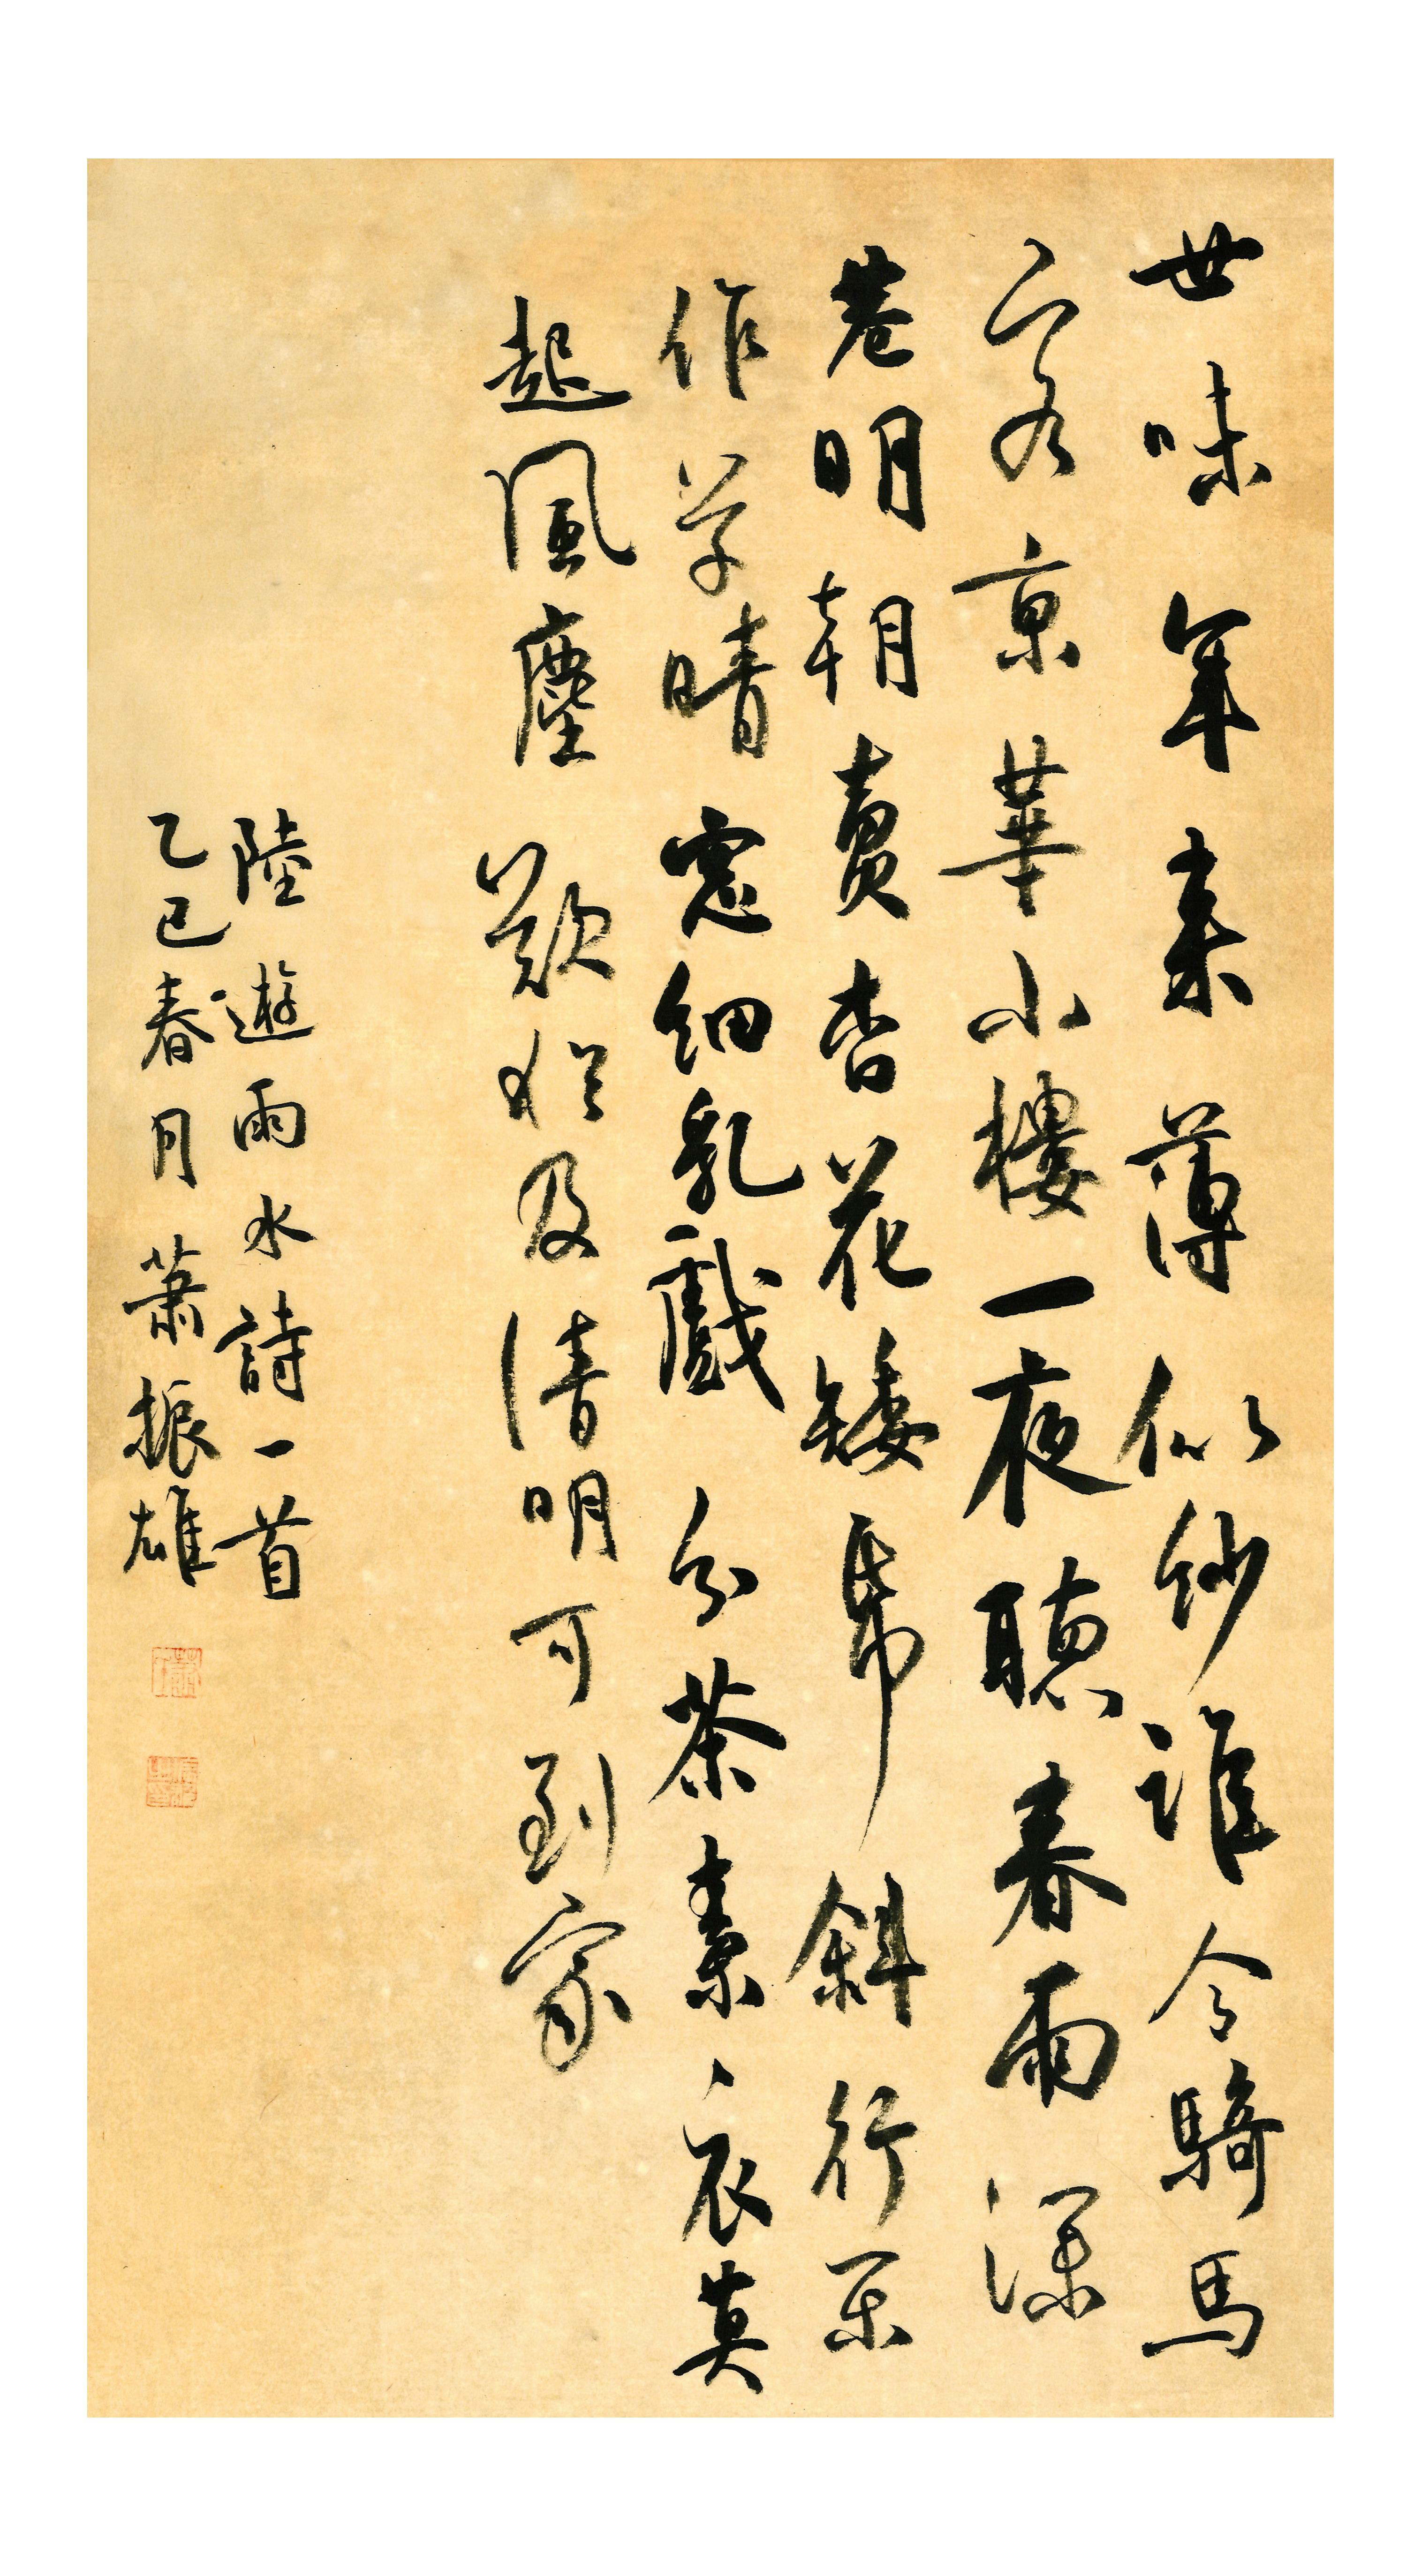 世味年來薄似紗誰令騎馬
客京華小樓一夜聽春雨深
巷明朝賣杏花矮帋斜行閑
作草晴窓細乳戲分茶素衣莫
起風塵歎猶及清明可到家
陸遊雨水詩一首
乙巳春月蕭振雄